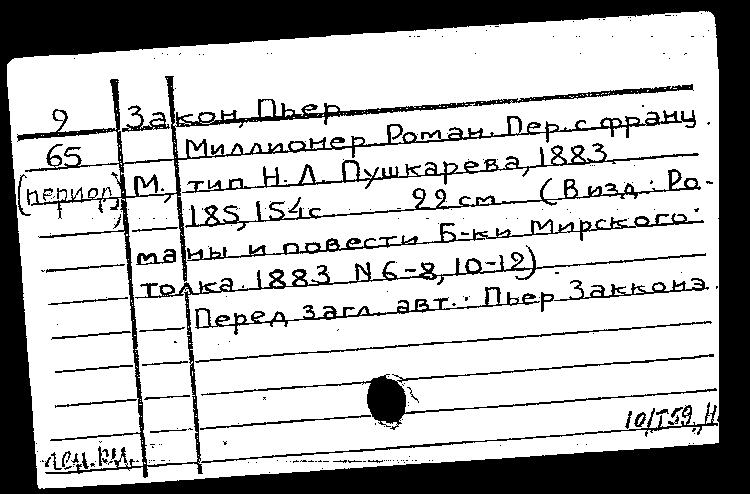 9 Закон, Пьер
65 Миллионер Роман. Пер. с франц.
(период) М, тип Н. Л. Пушкарева, 1883
185, 154с 22 см (В изд.: Ро-
маны и повести Б-ки Мирского
толка. 1883 N 6-8, 10-12)
Перед загл. авт.: Пьер Заккона.